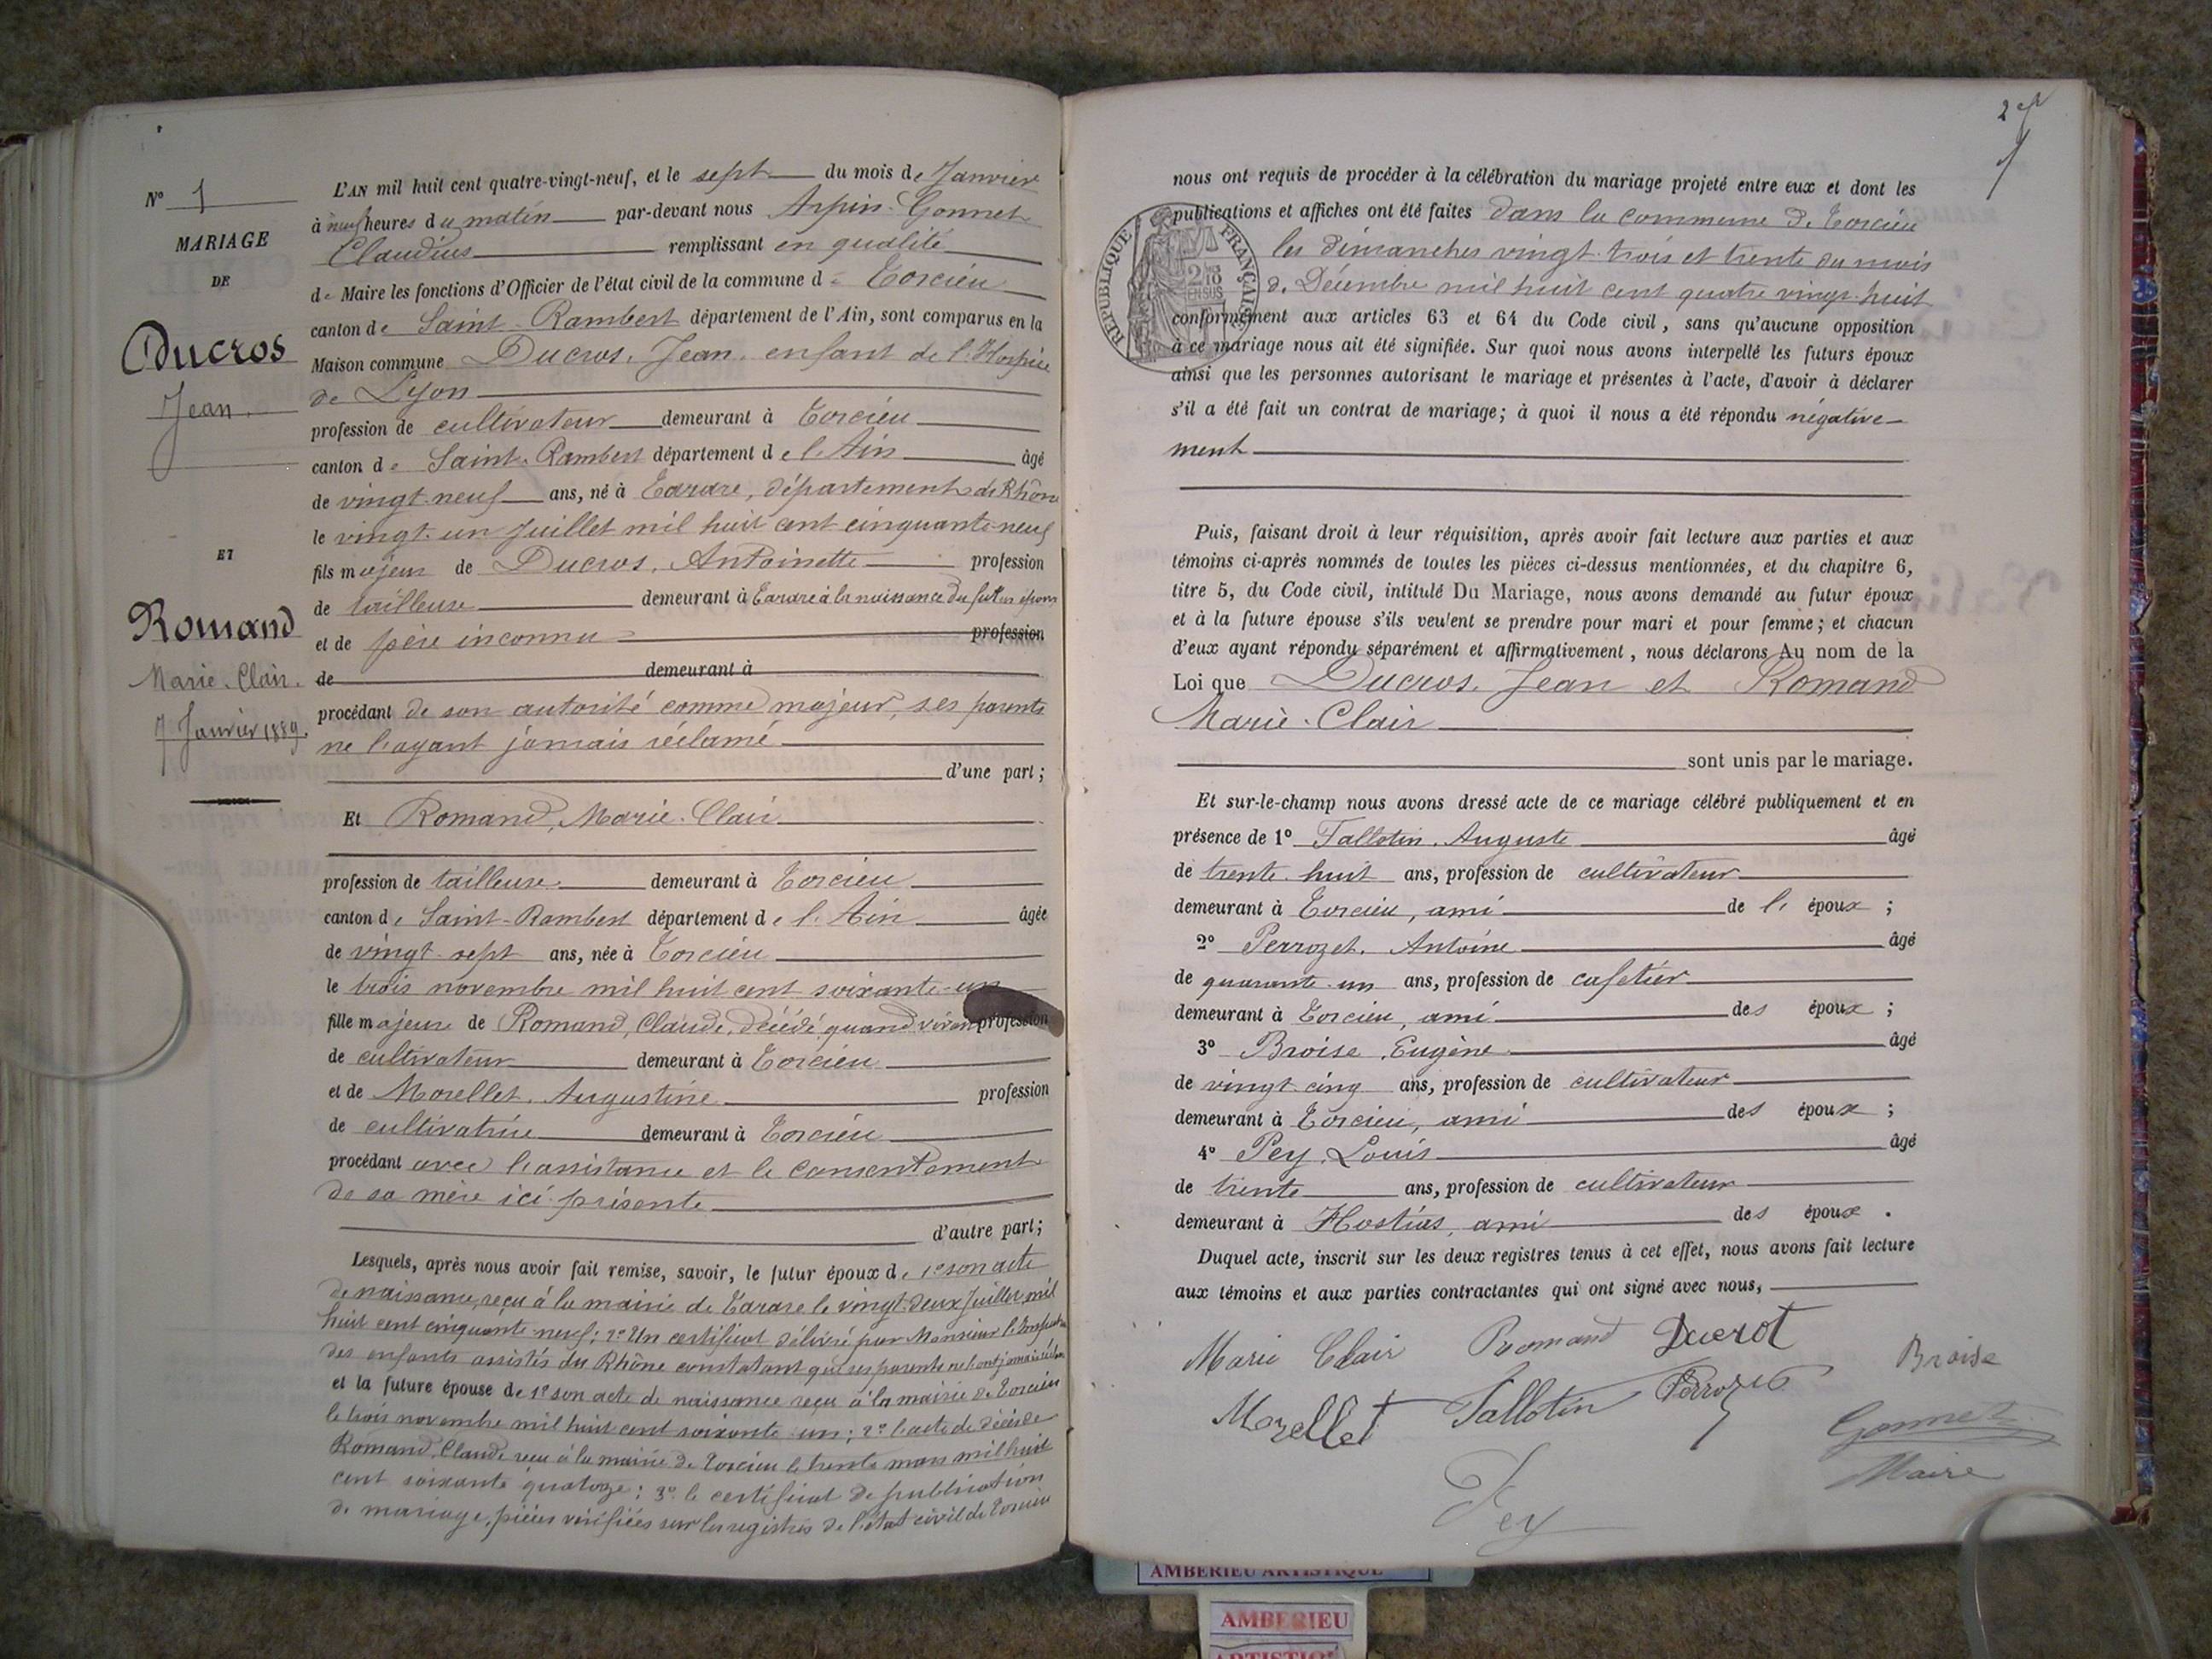 Nº 1
MARIAGE
DE
Ducros
Jean
ET
Romand
Marie-Clair.
7 Janvier 1889.
L'AN mil huit cent quatre-vingt-neuf, et le sept du mois de Janvier
à neuf heures du matin par-devant nous Arpin-Gonnet
Claudius remplissant en qualité
de Maire les fonctions d'Officier de l'état civil de la commune de Torcieu
canton de Saint-Rambert département de l'Ain, sont comparus en la
Maison commune Ducros, Jean, enfant de l'Hospice
de Lyon
profession de cultivateur demeurant à Torcieu
canton de Saint-Rambert département de l'Ain âgé
de vingt-neuf ans, né à Tarare, département du Rhône
le vingt-un Juillet mil huit cent cinquante-neuf
fils majeur de Ducros, Antoinette profession
de tailleuse demeurant à Tarare à la naissance du futur époux
et de père inconnu profession
de demeurant à
procédant de son autorité comme majeur, ses parents
ne l'ayant jamais réclamé
d'une part;
Et Romand, Marie-Clair
profession de tailleuse demeurant à Torcieu
canton de Saint-Rambert département de l'Ain âgée
de vingt-sept ans, née à Torcieu
le trois novembre mil huit cent soixante-un
fille majeure de Romand, Claude, décédé quand vivan profession
de cultivateur demeurant à Torcieu
et de Morellet, Augustine profession
de cultivatrice demeurant à Torcieu
procédant avec l'assistance et le consentement
de sa mère ici présente
d'autre part;
Lesquels, après nous avoir fait remise, savoir, le futur époux de 1º son acte
de naissance, reçu à la mairie de Tarare le vingt-deux Juillet mil
huit cent cinquante-neuf; 2º Un certificat délivré par Monsieur
des enfants assistés du Rhône constatant que ses parents ne l'ont jamais
et la future épouse de 1º son acte de naissance reçu à la mairie de Torcieu
le trois novembre mil huit cent soixante-un; 2º l'acte de décès de
Romand, Claude reçu à la mairie de Torcieu le trente mars mil huit
cent soixante quatorze; 3º le certificat de publication
de mariage, pièces vérifiées sur les registres de l'état civil de Torcieu
nous ont requis de procéder à la célébration du mariage projeté entre eux et dont les
publications et affiches ont été faites dans la commune de Torcieu
les dimanches vingt-trois et trente du mois
de Décembre mil huit cent quatre vingt-huit
RÉPUBLIQUE FRANÇAISE
conformément aux articles 63 et 64 du Code civil, sans qu'aucune opposition
à ce mariage nous ait été signifiée. Sur quoi nous avons interpellé les futurs époux
ainsi que les personnes autorisant le mariage et présentes à l'acte, d'avoir à déclarer
s'il a été fait un contrat de mariage; à quoi il nous a été répondu négative-
ment
Puis, faisant droit à leur réquisition, après avoir fait lecture aux parties et aux
témoins ci-après nommés de toutes les pièces ci-dessus mentionnées, et du chapitre 6,
titre 5, du Code civil, intitulé Du Mariage, nous avons demandé au futur époux
et à la future épouse s'ils veulent se prendre pour mari et pour femme; et chacun
d'eux ayant répondu séparément et affirmativement, nous déclarons Au nom de la
Loi que Ducros, Jean et Romand
Marie-Clair
sont unis par le mariage.
Et sur-le-champ nous avons dressé acte de ce mariage célébré publiquement et en
présence de 1º Tallotin, Auguste âgé
de trente-huit ans, profession de cultivateur
demeurant à Torcieu, ami de l' époux;
2º Perrozet, Antoine âgé
de quarante-un ans, profession de cafetier
demeurant à Torcieu, ami des époux;
3º Broise, Eugène âgé
de vingt-cinq ans, profession de cultivateur
demeurant à Torcieu, ami des époux;
4º Pey, Louis âgé
de trente ans, profession de cultivateur
demeurant à Hostias, ami des époux.
Duquel acte, inscrit sur les deux registres tenus à cet effet, nous avons fait lecture
aux témoins et aux parties contractantes qui ont signé avec nous,
Marie Clair Romand Ducrot Broise
Morellet Tallotin Perrozet
Gonnet
Maire
Pey
AMBERIEU ARTISTIQUE
AMBERIEU
ARTISTIQUE